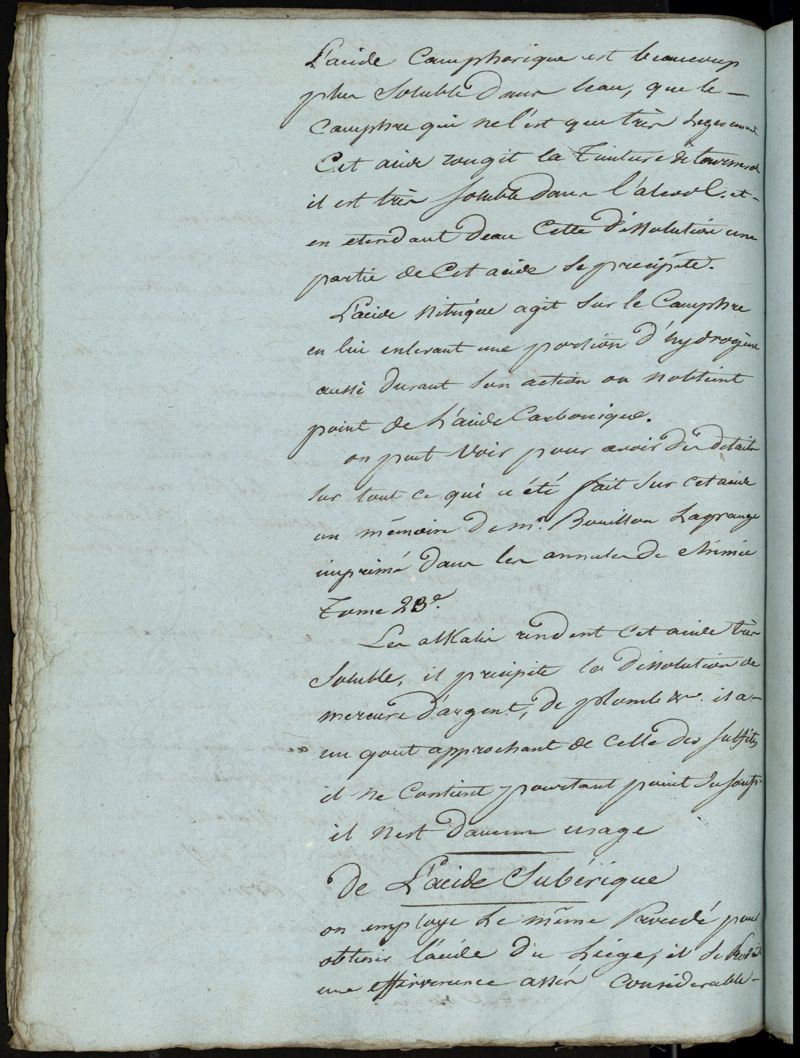 L'acide Camphorique est beaucoup
plus Soluble dans leau, que le
Camphre qui ne l'est que très Legerement
Cet acide rougit la Tinture de tournesol
il est très Soluble dans l'alcool. et
en etendant deau Cette Dissolution une
partie de Cet acide se precipite.
L'acide Nitrique agit Sur le Camphre
en lui enlevant une portion d'hydrogène
aussi durant Son action on n'obtient
point de L'acide Carbonique.
on peut Voir pour avoir des details
Sur tout ce qui a été fait Sur cet acide
un mémoire de mr. Bouillon Lagrange
imprimé dans les annales de Chimie
Tome 23e.
Les alkalis rendent cet acide très
Soluble, il precipite la dissolution de
mercure d'argent, de plomb &c. il a
un gout approchant de celle des Sulfites
il ne Contient pourtant point du Souf.
il n'est d'aucun usage
De L'acide Subérique
on employe Le même Procedé pour
obtenir l'acide du Liège, il se
une effervescence assés Considerable